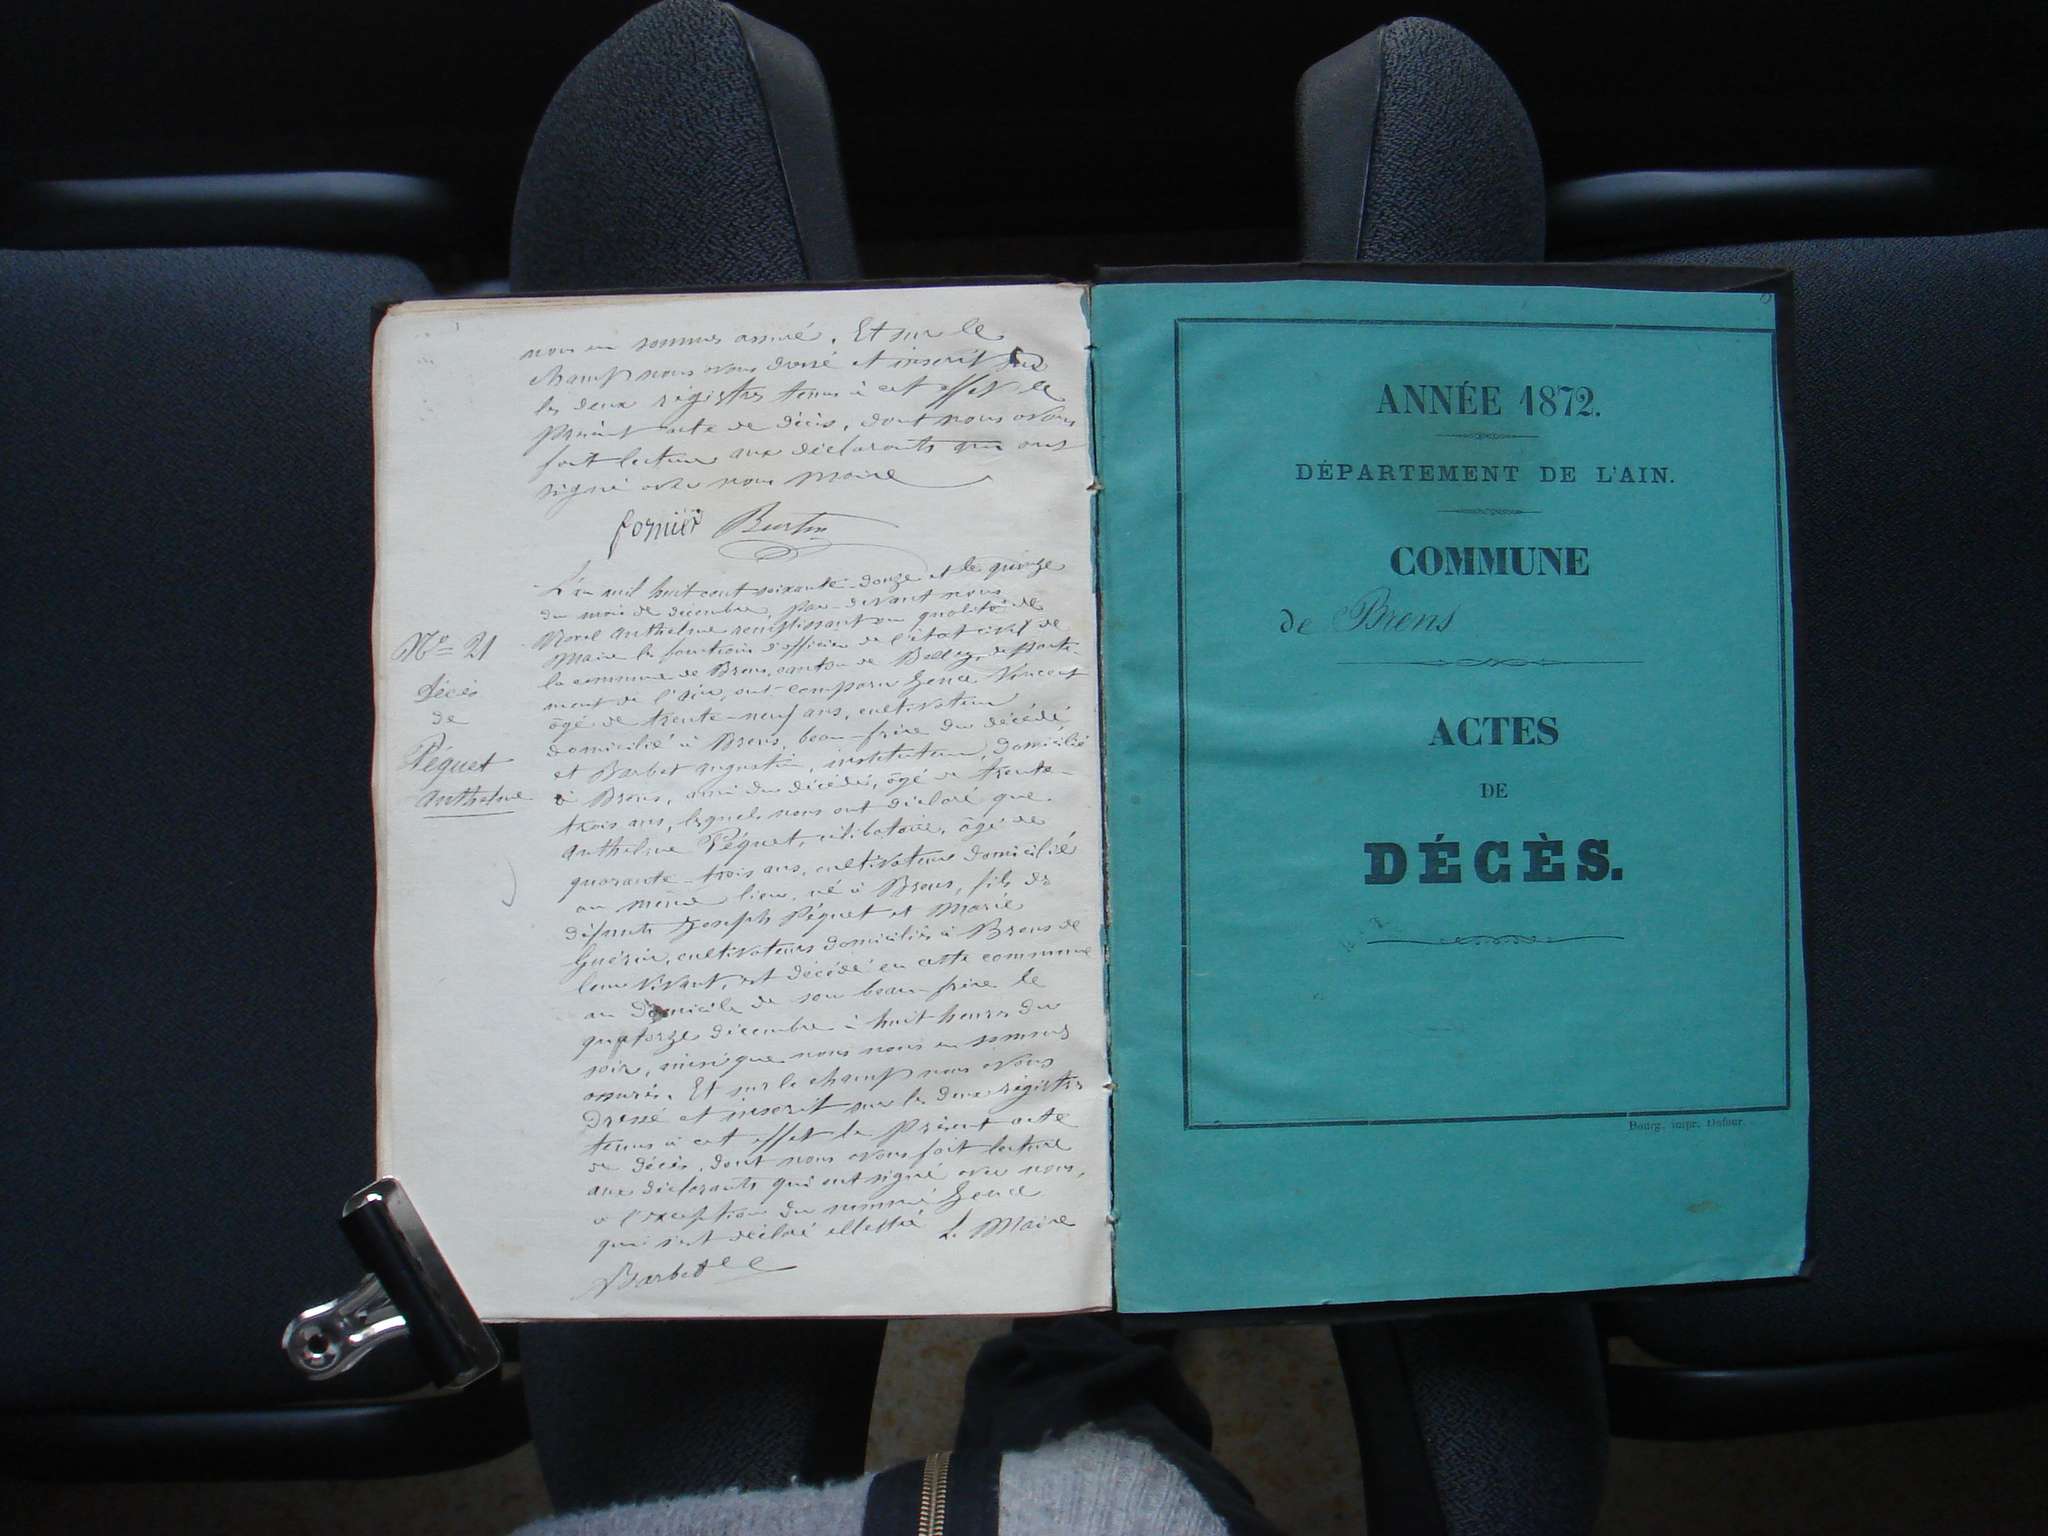 nous en sommes assuré. Et sur le
champ nous avons dressé et inscrit sur
les deux régistres tenus à cet effet le
présent acte de décès, dont nous avons
fait lecture aux déclarants qui ont
signé avec nous Maire
fornier Burtin
L'an mil huit cent soixante-douze et le quinze
du mois de décembre, par-devant nous
Morel Anthelme remplissant en qualité de
Maire les fonctions d'officier de l'état civil de
la commune de Brens, canton de Belley, départe-
ment de l'Ain, ont comparu Vincent
âgé de trente-neuf ans, cultivateur
domicilié à Brens, beau-frère du décédé
et Barbet augustin, instituteur, domicilié
à Brens, ami du décédé, âgé de trente-
trois ans, lesquels nous ont déclaré que
Anthelme Péguet, célibataire, âgé de
quarante-trois ans, cultivateur domicilié
au même lieu, né à Brens, fils de
défunts Joseph Péguet et Marie
Guérin, cultivateurs domiciliés à Brens de
leur vivant, est décédé en cette commune
au domicile de son beau-frère le
quatorze décembre à huit heures du
soir, ainsi que nous nous en sommes
assurés. Et sur le champ nous avons
dressé et inscrit sur les deux régistres
tenus à cet effet le présent acte
de décès, dont nous avons fait lecture
aux déclarants qui ont signé avec nous,
à l'exception du nommé
qui s'est déclaré illettré Le Maire
Barbet
Nº 21
décès
de
Péguet
Anthelme
ANNÉE 1872.
DÉPARTEMENT DE L'AIN.
COMMUNE
de Brens
ACTES
DE
DÉCÈS.
Bourg, impr. Dufour.